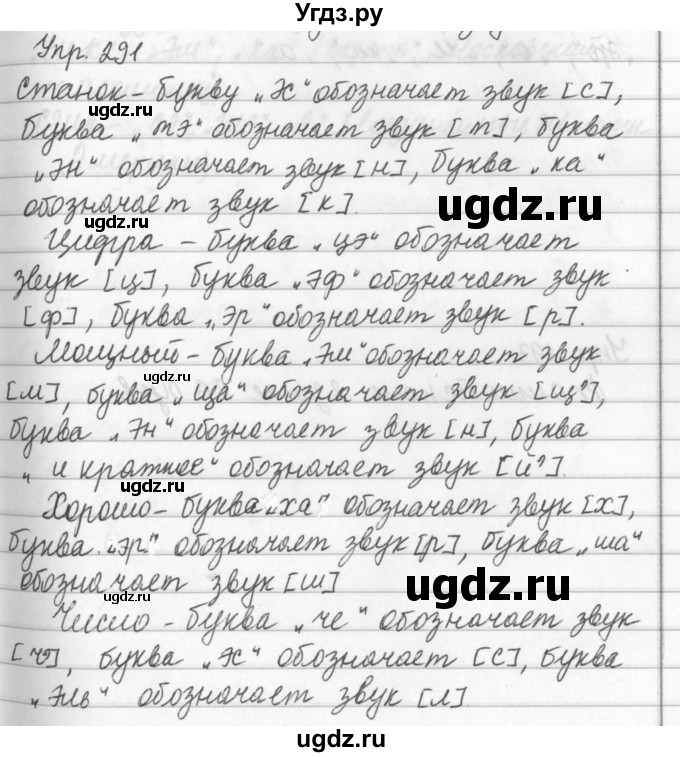 Угдз.ру
Упр. 291
Станок – букву „эс“ обозначает звук [с],
ugdz.ru
буква „тэ“ обозначает звук [т], буква
„эн“ обозначает звук [н], буква „ка“
обозначает звук [к].
ugdz.ru
Цифра – буква „цэ“ обозначает
звук [ц], буква „эф“ обозначает звук
ugdz.ru
[ф], буква „эр“ обозначает звук [р].
Мощный – буква „эм“ обозначает звук
ugdz.ru
[м], буква „ща“ обозначает звук [щ'],
буква „эн“ обозначает звук [н], буква
„и краткое“ обозначает звук [й'].
ugdz.ru
Хорошо – буква „ха“ обозначает звук [х],
буква „эр“ обозначает звук [р], буква „ша“
обозначает звук [ш]
ugdz.ru
ugdz.ru
Число – буква „че“ обозначает звук
[ч'], буква „эс“ обозначает [с], буква
„эль“ обозначает звук [л]
ugdz.ru
ugdz.ru